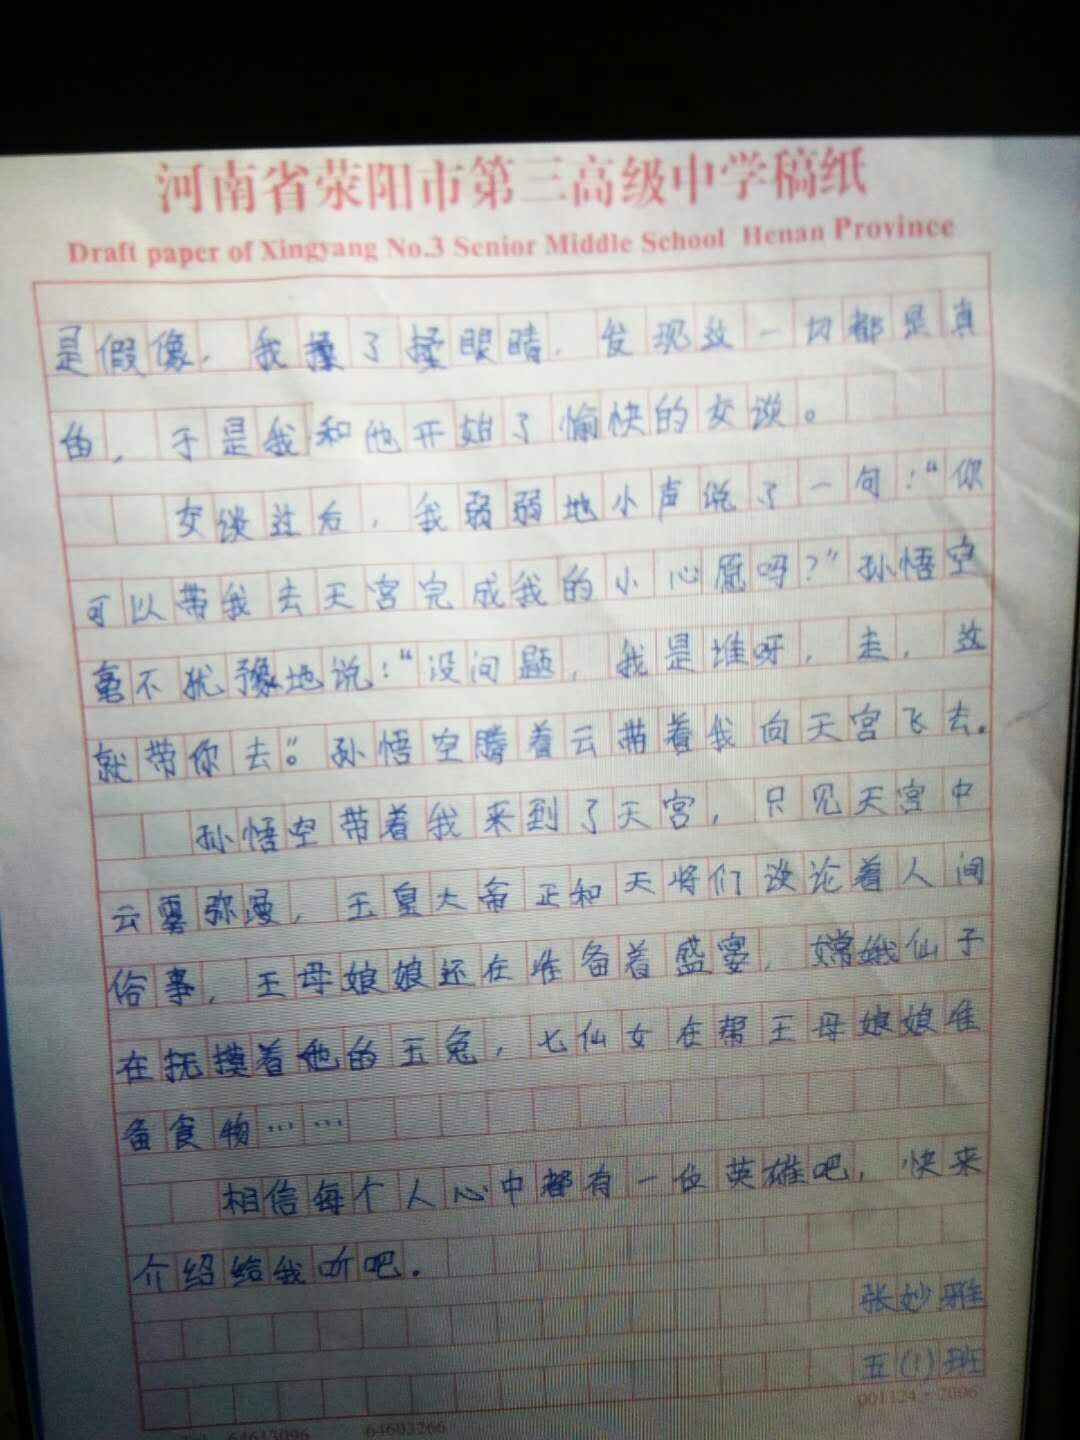 河南省荥阳市第三高级中学稿纸
Draft paper of Xingyang No.3 Senior Middle School Henan Province
是假像，我揉了揉眼睛，发现这一切都是真
的，于是我和他开始了愉快的交谈。
交谈过后，我弱弱地小声说了一句：“你
可以带我去天宫完成我的小心愿吗？”孙悟空
毫不犹豫地说：“没问题，我是谁呀，走，这
就带你去”。孙悟空腾着云带着我向天宫飞去。
孙悟空带着我来到了天宫，只见天宫中
云雾弥漫，玉皇大帝正和天将们谈论着人间
俗事，王母娘娘还在准备着盛宴，嫦娥仙子
在抚摸着他的玉兔，七仙女在帮王母娘娘准
备食物……
相信每个人心中都有一位英雄吧，快来
介绍给我听吧。
张妙雅
五（1）班
001124·2006
64643096 64603266